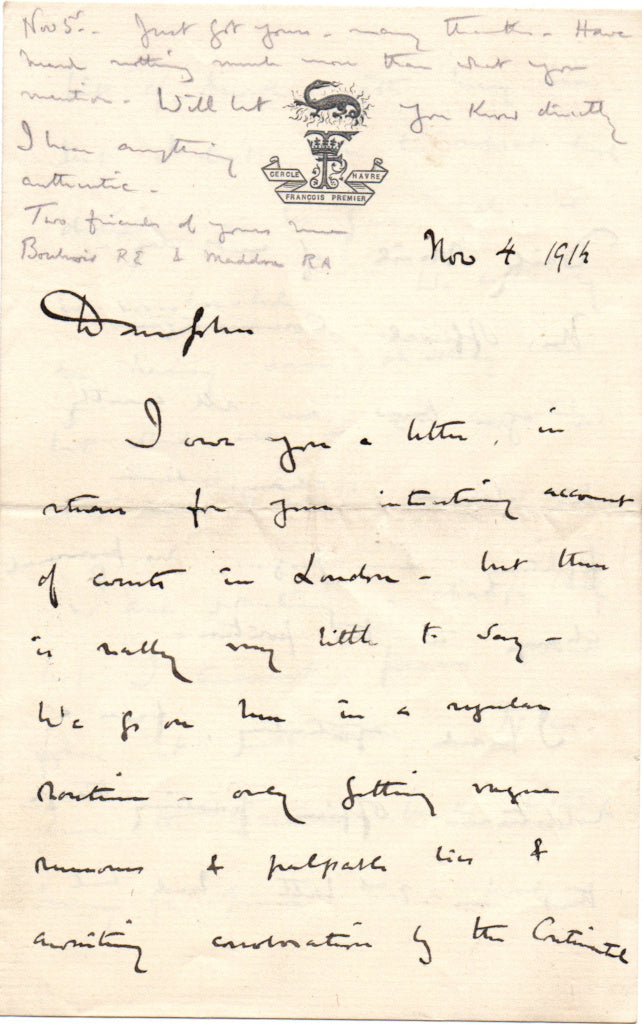 Nov 5. - Just got yours - many thanks - Have
heard nothing much more than what you
mention - Will let you know directly
I hear anything
authentic -
Two friends of yours here
R E & Maddox RA
CERCLE HAVRE
FRANCOIS PREMIER
Nov 4 1914
Dear John
I owe you a letter, in
return for your interesting account
of events in London - but there
is really very little to say -
We go on here in a regular
routine - only getting vague
rumours & palpable lies &
awaiting corroboration by the Continental